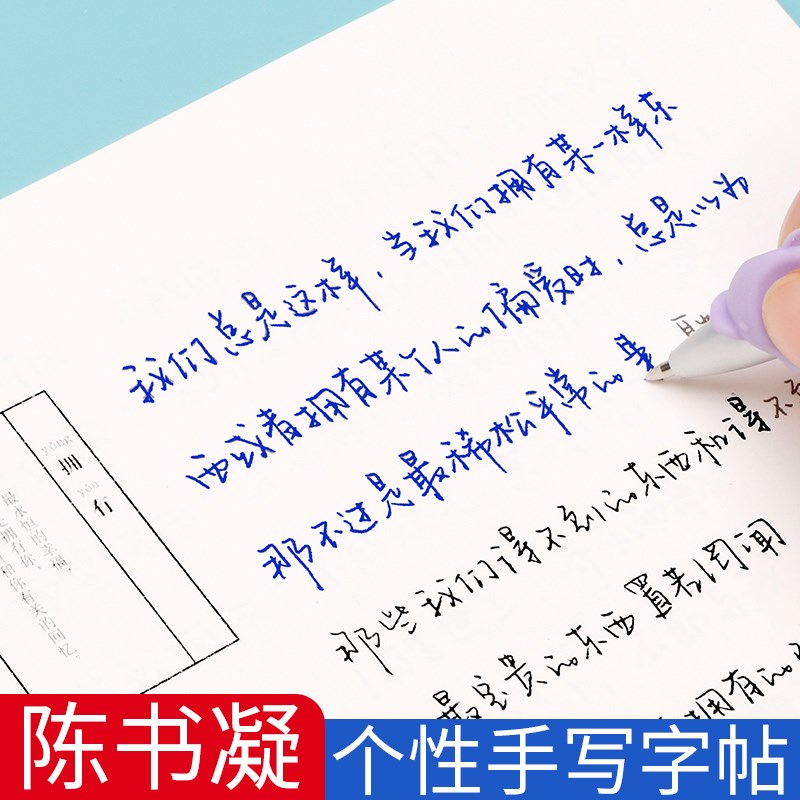 我们总是这样，当我们拥有某一样东
西或者拥有某个人的偏爱时，总是以为
那不过是最稀松平常的
那些我们得不到的东西和得不
最宝贵的东西置若罔闻
拥有的
yōng yǒu
拥有
最永恒的幸福，
拥有你，
你有关的回忆。
陈书凝
个性手写字帖